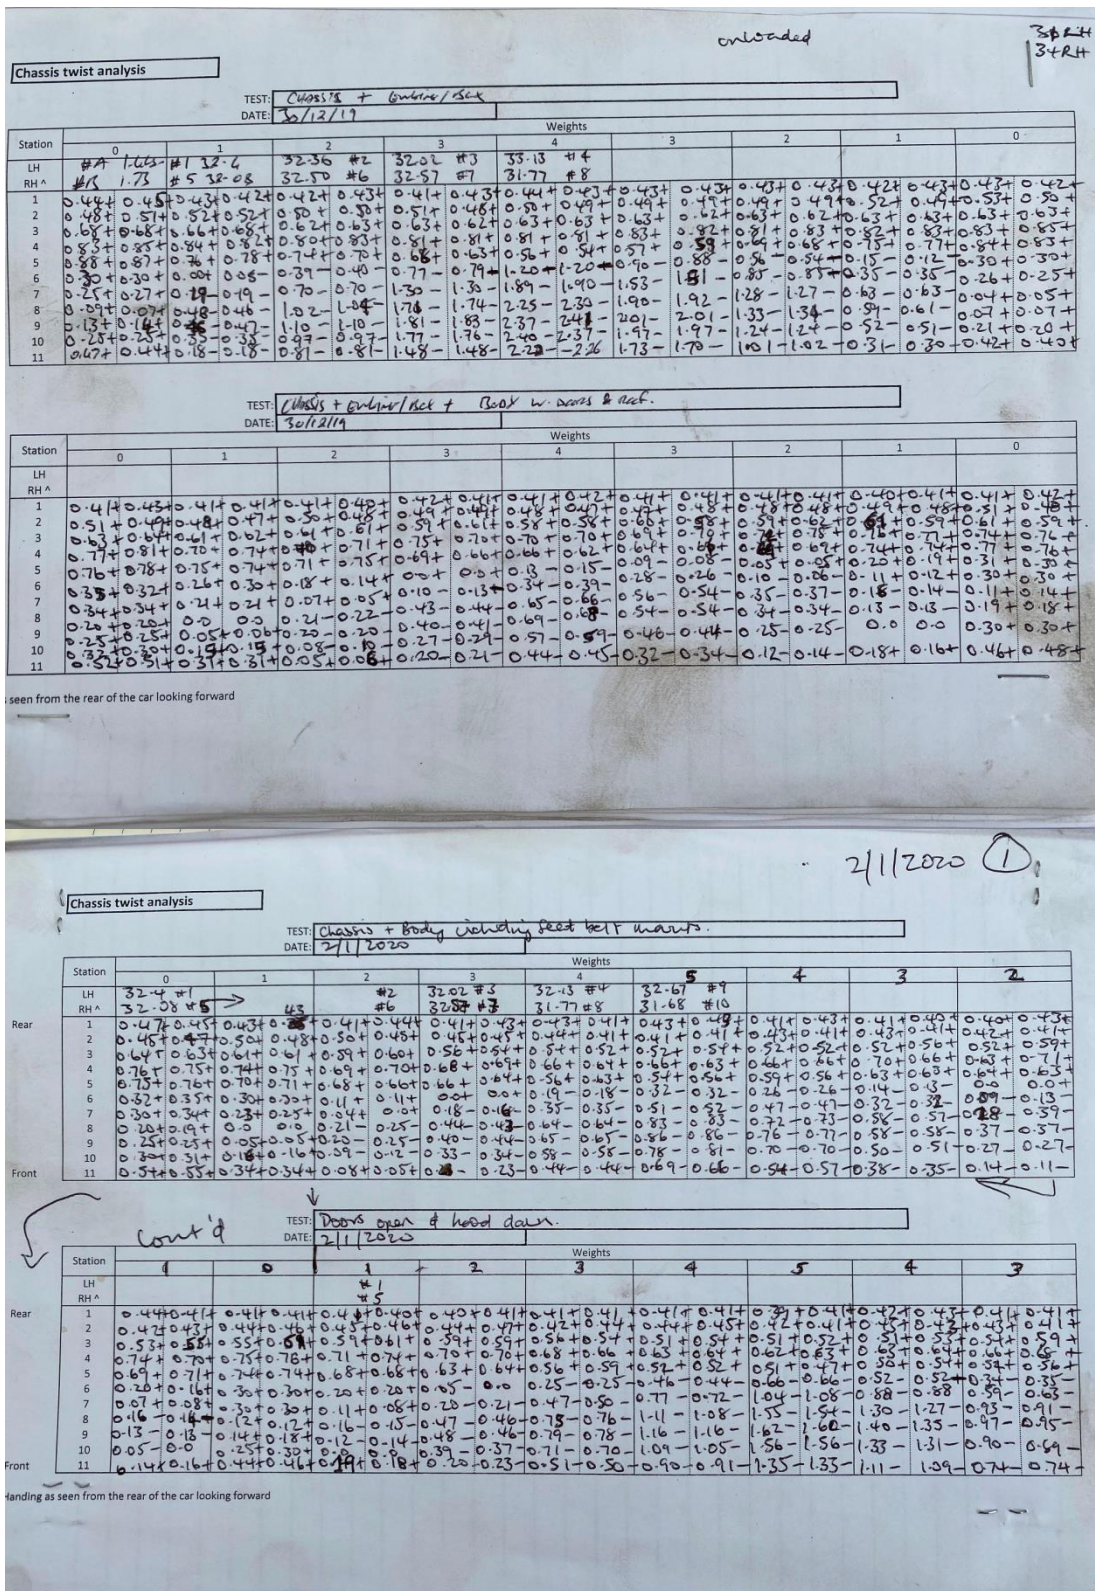 unloaded
34RH
Chassis twist analysis
TEST: CHASSIS + Engine/Box
DATE: 30/12/19
Weights
Station 0 1 2 3 4 3 2 1 0
LH #A #1 32.4 32.36 #2 32.02 #3 33.13 #4
RH ^ #B 1.73 #5 32.08 32.50 #6 32.57 #7 31.77 #8
1 0.44+ 0.45+ 0.43+ 0.42+ 0.42+ 0.43+ 0.41+ 0.43+ 0.44+ 0.43+ 0.43+ 0.43+ 0.43+ 0.43+ 0.42+ 0.43+ 0.43+ 0.42+
2 0.48+ 0.51+ 0.52+ 0.52+ 0.50+ 0.50+ 0.51+ 0.48+ 0.50+ 0.49+ 0.49+ 0.49+ 0.49+ 0.49+ 0.52+ 0.49+ 0.53+ 0.50+
3 0.68+ 0.68+ 0.66+ 0.68+ 0.62+ 0.63+ 0.63+ 0.62+ 0.63+ 0.63+ 0.63+ 0.62+ 0.63+ 0.62+ 0.63+ 0.63+ 0.63+ 0.63+
4 0.83+ 0.85+ 0.84+ 0.82+ 0.80+ 0.83+ 0.81+ 0.81+ 0.81+ 0.81+ 0.83+ 0.82+ 0.81+ 0.83+ 0.82+ 0.83+ 0.83+ 0.85+
5 0.88+ 0.87+ 0.76+ 0.78+ 0.74+ 0.70+ 0.68+ 0.63+ 0.56+ 0.54+ 0.57+ 0.59 0.69+ 0.68+ 0.75+ 0.77+ 0.84+ 0.83+
6 0.30+ 0.30+ 0.39- 0.40- 0.77- 0.79- 1.20- 1.20- 0.90- 0.88- 0.56- 0.54- 0.15- 0.12- 0.30+ 0.30+
7 0.25+ 0.27+ 0.19- 0.19- 0.70- 0.70- 1.30- 1.30- 1.89- 1.90- 1.53- 0.85- 0.85- 0.35- 0.35- 0.26+ 0.25+
8 0.09+ 0.07+ 0.48- 0.46- 1.02- 1.04- 1.74- 2.25- 2.30- 1.90- 1.92- 1.28- 1.27- 0.63- 0.63- 0.04+ 0.05+
9 0.13+ 0.14+ 0.47- 1.10- 1.10- 1.81- 1.83- 2.37- 2.41 2.01- 2.01- 1.33- 1.34- 0.59- 0.61- 0.07+ 0.07+
10 0.25+ 0.25+ 0.35- 0.35- 0.97- 0.97- 1.77- 1.76- 2.40- 2.37- 1.97- 1.97- 1.24- 1.24- 0.52- 0.51- 0.21+ 0.20+
11 0.47+ 0.44+ 0.18- 0.18- 0.81- 0.81- 1.48- 1.48- 2.22- 2.26 1.73- 1.70- 1.01- 1.02- 0.31- 0.30- 0.42+ 0.40+
TEST: Chassis + Engine/Box + Body w. doors & roof.
DATE: 30/12/19
Weights
Station 0 1 2 3 4 3 2 1 0
LH
RH ^
1 0.41+ 0.43+ 0.41+ 0.41+ 0.41+ 0.40+ 0.42+ 0.41+ 0.41+ 0.42+ 0.41+ 0.41+ 0.41+ 0.41+ 0.40+ 0.41+ 0.41+ 0.42+
2 0.51+ 0.49+ 0.48+ 0.47+ 0.50+ 0.48+ 0.49+ 0.49+ 0.48+ 0.47+ 0.49+ 0.48+ 0.48+ 0.48+ 0.49+ 0.48+ 0.51+ 0.48+
3 0.63+ 0.64+ 0.61+ 0.62+ 0.61+ 0.61+ 0.59+ 0.61+ 0.58+ 0.58+ 0.60+ 0.58+ 0.59+ 0.62+ 0.59+ 0.61+ 0.59+
4 0.77+ 0.81+ 0.70+ 0.74+ 0.71+ 0.75+ 0.70+ 0.70+ 0.70+ 0.69+ 0.70+ 0.75+ 0.76+ 0.77+ 0.74+ 0.76+
5 0.76+ 0.78+ 0.75+ 0.74+ 0.71+ 0.75+ 0.69+ 0.66+ 0.66+ 0.62+ 0.64+ 0.69+ 0.74+ 0.74+ 0.77+ 0.76+
6 0.35+ 0.32+ 0.26+ 0.30+ 0.18+ 0.14+ 0.0+ 0.0+ 0.13- 0.15- 0.09- 0.08- 0.05+ 0.05+ 0.20+ 0.19+ 0.31+ 0.30+
7 0.34+ 0.34+ 0.21+ 0.21+ 0.07+ 0.05+ 0.10- 0.13- 0.34- 0.39- 0.28- 0.26- 0.10- 0.06- 0.11+ 0.12+ 0.30+ 0.30+
8 0.20+ 0.20+ 0.0 0.0 0.21- 0.22- 0.43- 0.44- 0.65- 0.66- 0.56- 0.54- 0.35- 0.37- 0.18- 0.14- 0.11+ 0.14+
9 0.25+ 0.25+ 0.05+ 0.06+ 0.20- 0.20- 0.40- 0.41- 0.69- 0.68- 0.54- 0.54- 0.34- 0.34- 0.13- 0.13- 0.19+ 0.18+
10 0.32+ 0.30+ 0.15+ 0.15+ 0.08- 0.10- 0.27- 0.29- 0.57- 0.59- 0.46- 0.44- 0.25- 0.25- 0.0 0.0 0.30+ 0.30+
11 0.52+ 0.51+ 0.31+ 0.31+ 0.05+ 0.06+ 0.20- 0.21- 0.44- 0.45- 0.32- 0.34- 0.12- 0.14- 0.18+ 0.16+ 0.46+ 0.48+
seen from the rear of the car looking forward
2/1/2020 1
Chassis twist analysis
TEST: Chassis + Body including seat belt mounts.
DATE: 2/1/2020
Weights
Station 0 1 2 3 4 5 4 3 2
LH 32.4 #1 #2 32.02 #3 32.13 #4 32.67 #9
RH ^ 32.08 #5 43 #6 32.57 #7 31.77 #8 31.68 #10
Rear 1 0.47+ 0.45+ 0.43+ 0.41+ 0.44+ 0.41+ 0.43+ 0.43+ 0.41+ 0.43+ 0.41+ 0.43+ 0.41+ 0.40+ 0.40+ 0.43+
2 0.45+ 0.47+ 0.50+ 0.48+ 0.50+ 0.45+ 0.45+ 0.45+ 0.44+ 0.41+ 0.41+ 0.41 0.43+ 0.41+ 0.43+ 0.41+ 0.42+ 0.41+
3 0.64+ 0.63+ 0.61+ 0.61+ 0.59+ 0.60+ 0.56+ 0.54+ 0.54+ 0.52+ 0.52+ 0.54+ 0.52+ 0.52+ 0.52+ 0.56+ 0.52+ 0.59+
4 0.76+ 0.75+ 0.74+ 0.75+ 0.69+ 0.70+ 0.68+ 0.69+ 0.66+ 0.64+ 0.66+ 0.63+ 0.66+ 0.66+ 0.70+ 0.66+ 0.63+ 0.71+
5 0.75+ 0.76+ 0.70+ 0.71+ 0.68+ 0.66+ 0.66+ 0.64+ 0.56+ 0.63+ 0.54+ 0.56+ 0.59+ 0.56+ 0.63+ 0.63+ 0.64+ 0.63+
6 0.32+ 0.35+ 0.30+ 0.30+ 0.11+ 0.11+ 0.0+ 0.0+ 0.19- 0.18- 0.32- 0.32- 0.26- 0.26- 0.14- 0.13- 0.0 0.0+
7 0.30+ 0.34+ 0.23+ 0.25+ 0.04+ 0.0+ 0.18- 0.16- 0.35- 0.35- 0.51- 0.52- 0.47- 0.47- 0.32- 0.32- 0.13-
8 0.20+ 0.19+ 0.0 0.0 0.21- 0.25- 0.44- 0.43- 0.64- 0.64- 0.83- 0.83- 0.72- 0.73- 0.58- 0.57- 0.39-
9 0.25+ 0.25+ 0.05+ 0.05+ 0.20- 0.25- 0.40- 0.44- 0.65- 0.65- 0.86- 0.86- 0.76- 0.77- 0.58- 0.58- 0.37- 0.37-
10 0.30+ 0.31+ 0.16+ 0.16+ 0.09- 0.12- 0.33- 0.34- 0.58- 0.58- 0.78- 0.81- 0.70- 0.70- 0.50- 0.51- 0.27- 0.27-
Front 11 0.54+ 0.55+ 0.34+ 0.34+ 0.08+ 0.05+ 0.23- 0.44- 0.44- 0.69- 0.66- 0.54- 0.57- 0.38- 0.35- 0.14- 0.11-
Cont'd
TEST: Doors open & hood down.
DATE: 2/1/2020
Weights
Station 1 0 1 2 3 4 5 4 3
LH #1
RH ^ #5
Rear 1 0.44+ 0.41+ 0.41+ 0.41+ 0.40+ 0.40+ 0.41+ 0.41+ 0.41 0.41+ 0.41+ 0.39+ 0.41+ 0.42+ 0.43+ 0.41+ 0.41+
2 0.42+ 0.43+ 0.44+ 0.46+ 0.45+ 0.46+ 0.44+ 0.47+ 0.42+ 0.44+ 0.44+ 0.45+ 0.42+ 0.41+ 0.43+ 0.43+ 0.43+ 0.41+
3 0.53+ 0.55+ 0.55+ 0.59+ 0.59+ 0.61+ 0.59+ 0.59+ 0.56+ 0.54+ 0.51+ 0.54+ 0.51+ 0.52+ 0.51+ 0.55+ 0.54+ 0.59+
4 0.74+ 0.70+ 0.75+ 0.76+ 0.71+ 0.74+ 0.70+ 0.70+ 0.68+ 0.66+ 0.63+ 0.64+ 0.62+ 0.63+ 0.63+ 0.64+ 0.66+ 0.68+
5 0.69+ 0.71+ 0.74+ 0.74+ 0.68+ 0.68+ 0.63+ 0.64+ 0.56+ 0.59+ 0.52+ 0.52+ 0.51+ 0.47+ 0.50+ 0.54+ 0.54+ 0.56+
6 0.20+ 0.16+ 0.30+ 0.30+ 0.20+ 0.20+ 0.05- 0.0 0.25- 0.25- 0.46- 0.44- 0.66- 0.66- 0.52- 0.52- 0.34- 0.35-
7 0.07+ 0.08+ 0.30+ 0.30+ 0.11+ 0.08+ 0.20- 0.21- 0.47- 0.50- 0.77- 0.72- 1.04- 1.08- 0.88- 0.88 0.59- 0.63-
8 0.16- 0.14- 0.12+ 0.12+ 0.16- 0.15- 0.47- 0.46- 0.75- 0.76- 1.11- 1.08- 1.55- 1.54- 1.30- 1.27- 0.93- 0.91-
9 0.13- 0.13- 0.14+ 0.18+ 0.12- 0.14- 0.48- 0.46- 0.79- 0.78- 1.16- 1.16- 1.62- 1.60- 1.40- 1.35- 0.97- 0.95-
10 0.05- 0.0 0.25+ 0.30+ 0.39- 0.37- 0.71- 0.70- 1.09- 1.05- 1.56- 1.56- 1.33- 1.31- 0.90- 0.89-
Front 11 0.14+ 0.16+ 0.44+ 0.46+ 0.19+ 0.18+ 0.20- 0.23- 0.51- 0.50- 0.90- 0.91- 1.35- 1.33- 1.11- 1.09- 0.74- 0.74-
Handing as seen from the rear of the car looking forward